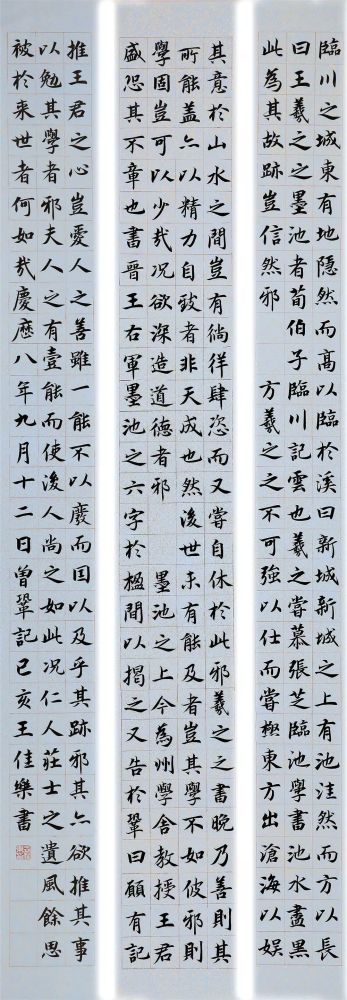 臨川之城東有地隱然而高以臨於溪曰新城新城之上有池洼然而方以長
曰王羲之之墨池者荀伯子臨川記雲也羲之嘗慕張芝臨池學書池水盡黑
此為其故跡豈信然邪 方羲之之不可強以仕而嘗極東方出滄海以娛
其意於山水之間豈有徜徉肆恣而又嘗自休於此邪羲之之書晚乃善則其
所能盖亦以精力自致者非天成也然後世未有能及者豈其學不如彼邪則
學固豈可以少哉况欲深造道德者邪 墨池之上今為州學舍教授王君
盛恐其不章也書晉王右軍墨池之六字於楹間以揭之又告於鞏曰願有記
推王君之心豈愛人之善雖一能不以廢而因以及乎其跡邪其亦欲推其事
以勉其學者邪夫人之有壹能而使後人尚之如此况仁人莊士之遺風餘思
被於来世者何如哉慶曆八年九月十二日曾鞏記己亥王佳樂書